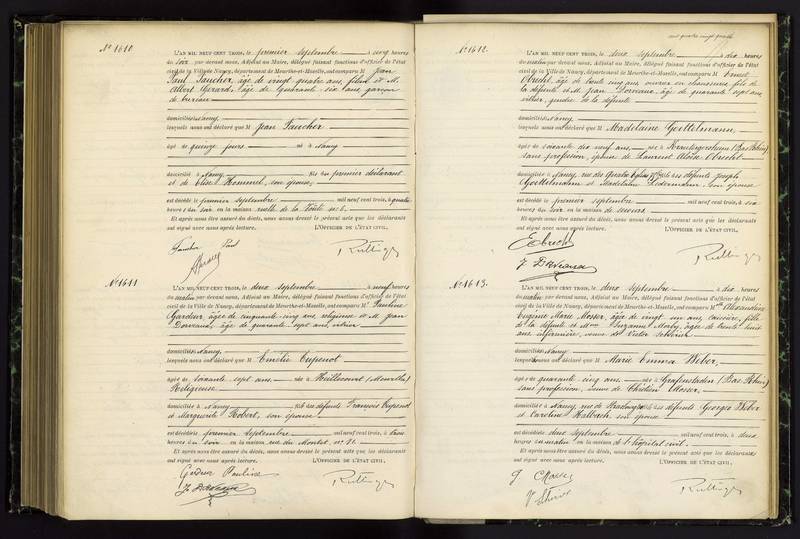 Nº 1610
L'AN MIL NEUF CENT TROIS, le premier septembre à cinq heures
du soir par devant nous, Adjoint au Maire, délégué faisant fonctions d'officier de l'état
civil de la Ville de Nancy, département de Meurthe-et-Moselle, ont comparu M Jean
Paul Faucher, âgé de vingt quatre ans, et M.
Albert Gérard, âgé de quarante six ans, garçon
de bureau
domiciliés à Nancy
lesquels nous ont déclaré que M Jean Faucher
âgé de quinze jours né à Nancy
domicilié à Nancy fils du premier déclarant
et de Elise Hommel, son épouse
est décédé le premier septembre mil neuf cent trois, à quatre
heures du soir, en la maison ruelle de la nº 6.
Et après nous être assuré du décès, nous avons dressé le présent acte que les déclarants
ont signé avec nous après lecture. L'OFFICIER DE L'ÉTAT CIVIL,
Faucher Paul
Nº 1611
L'AN MIL NEUF CENT TROIS, le deux septembre à neuf heures
du matin par devant nous, Adjoint au Maire, délégué faisant fonctions d'officier de l'état
civil de la Ville de Nancy, département de Meurthe-et-Moselle, ont comparu Me Pauline
Gardeur, âgée de cinquante cinq ans, religieuse et M. Jean
Dorveaux, âgé de quarante sept ans, vitrier
domiciliés à Nancy
lesquels nous ont déclaré que M Emélie Cupenot
âgée de soixante sept ans née à
Religieuse
domiciliée à Nancy fille des défunts François Cupenot
et Marguerite Robert, son épouse
est décédée le premier septembre mil neuf cent trois, à trois
heures du soir, en la maison rue du Montet, nº 91.
Et après nous être assuré du décès, nous avons dressé le présent acte que les déclarants
ont signé avec nous après lecture. L'OFFICIER DE L'ÉTAT CIVIL,
Gardeur Pauline
J. Dorveaux
cent quatre vingt quatre
Nº 1612.
L'AN MIL NEUF CENT TROIS, le deux septembre à dix heures
du matin par devant nous, Adjoint au Maire, délégué faisant fonctions d'officier de l'état
civil de la Ville de Nancy, département de Meurthe-et-Moselle, ont comparu M Ernest
Obrecht, âgé de trente cinq ans, ouvrier en chaussures, fils de
la défunte et M. Jean Dorveaux, âgé de quarante sept ans
vitrier, de la défunte
domiciliés à Nancy
lesquels nous ont déclaré que M Madelaine Goettelmann
âgée de soixante dix neuf ans née à Krautergersheim (Bas Rhin)
sans profession, épouse de Laurent Aloïse Obrecht
domiciliée à Nancy, rue des Quatre Eglises fille des défunts Joseph
Goettelmann et Madelaine son épouse
est décédée le premier septembre mil neuf cent trois, à six
heures du soir, en la maison de secours.
Et après nous être assuré du décès, nous avons dressé le présent acte que les déclarants
ont signé avec nous après lecture. L'OFFICIER DE L'ÉTAT CIVIL,
E Obrecht
J. Dorveaux
Nº 1613.
L'AN MIL NEUF CENT TROIS, le deux septembre à dix heures
du matin par devant nous, Adjoint au Maire, délégué faisant fonctions d'officier de l'état
civil de la Ville de Nancy, département de Meurthe-et-Moselle, ont comparu Mlle Alexandrine
Eugénie Marie Mosser, âgée de vingt un ans, caissière, fille
de la défunte et Mme Suzanne âgée de trente huit
ans infirmière, veuve de Victor
domiciliées à Nancy
lesquelles nous ont déclaré que M Marie Emma Weber
âgée de quarante cinq ans née à Grafenstaden (Bas Rhin)
sans profession, veuve de Chrétien Mosser
domiciliée à Nancy, rue de Strasbourg fille des défunts Georges Weber
et Caroline Halbach, son épouse
est décédée le deux septembre mil neuf cent trois, à deux
heures du matin, en la maison de l'hôpital civil.
Et après nous être assuré du décès, nous avons dressé le présent acte que les déclarants
ont signé avec nous après lecture. L'OFFICIER DE L'ÉTAT CIVIL,